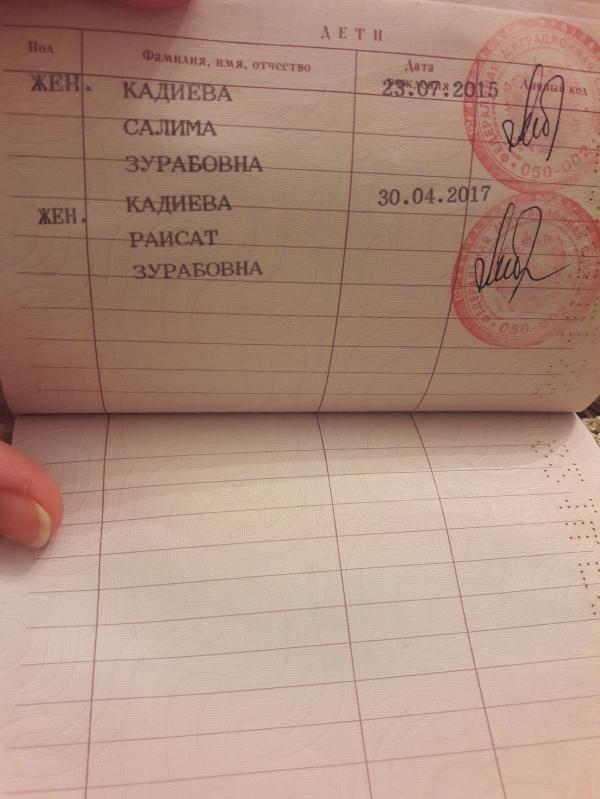 ДЕТИ
Пол Фамилия, имя, отчество Дата рождения Личный код
ЖЕН. КАДИЕВА 23.07.2015
САЛИМА
ЗУРАБОВНА
050-002
ЖЕН. КАДИЕВА 30.04.2017
РАИСАТ
ЗУРАБОВНА
050-002